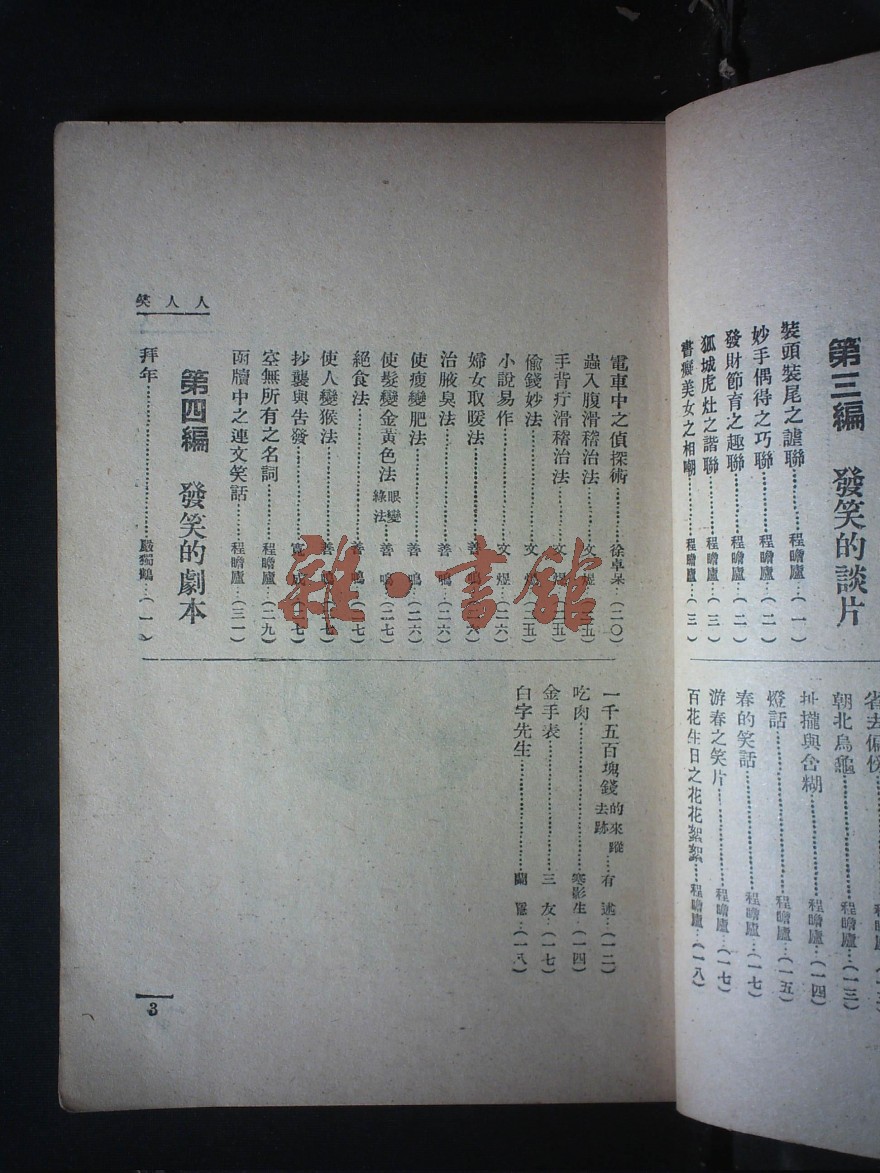 第三編　發笑的談片
裝頭裝尾之謔聯……程瞻廬…(一)
妙手偶得之巧聯……程瞻廬…(二)
發財節育之趣聯……程瞻廬…(二)
狐城虎灶之諧聯……程瞻廬…(三)
書癡美女之相嘲……程瞻廬…(三)
省去偏
朝北烏龜……程瞻廬…(一三)
扯攏與含糊……程瞻廬…(一四)
燈話……程瞻廬…(一五)
春的笑話……程瞻廬…(一七)
游春之笑片……程瞻廬…(一七)
百花生日之花花絮絮……程瞻廬…(一八)
人人笑
電車中之偵探術……徐卓呆…(二〇)
蟲入腹滑稽治法……文
手背疔滑稽治法……文
偷錢妙法……文　…(二五)
小說易作……文　…(二六)
婦女取暖法……善
治腋臭法……善　鳴…(二六)
使瘦變肥法……善　鳴…(二六)
使髮變金黃色法　眼變綠法…善　鳴…(二七)
絕食法……善　鳴…(二七)
使人變猴法……善
抄襲與告發
空無所有之名詞……程瞻廬…(二九)
函牘中之連文笑話……程瞻廬…(三一)
第四編　發笑的劇本
拜年……嚴獨鶴…(一)
一千五百塊錢的來蹤去跡…有　述…(一二)
吃肉……寒影生…(一四)
金手表……三　友…(一七)
白字先生……(一八)
3
雜·書館